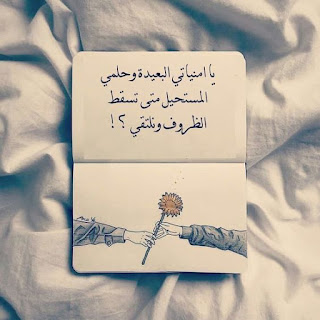 يا امنياتي البعيدة وحلمي
المستحيل متى تسقط
الظروف ونلتقي ؟ !